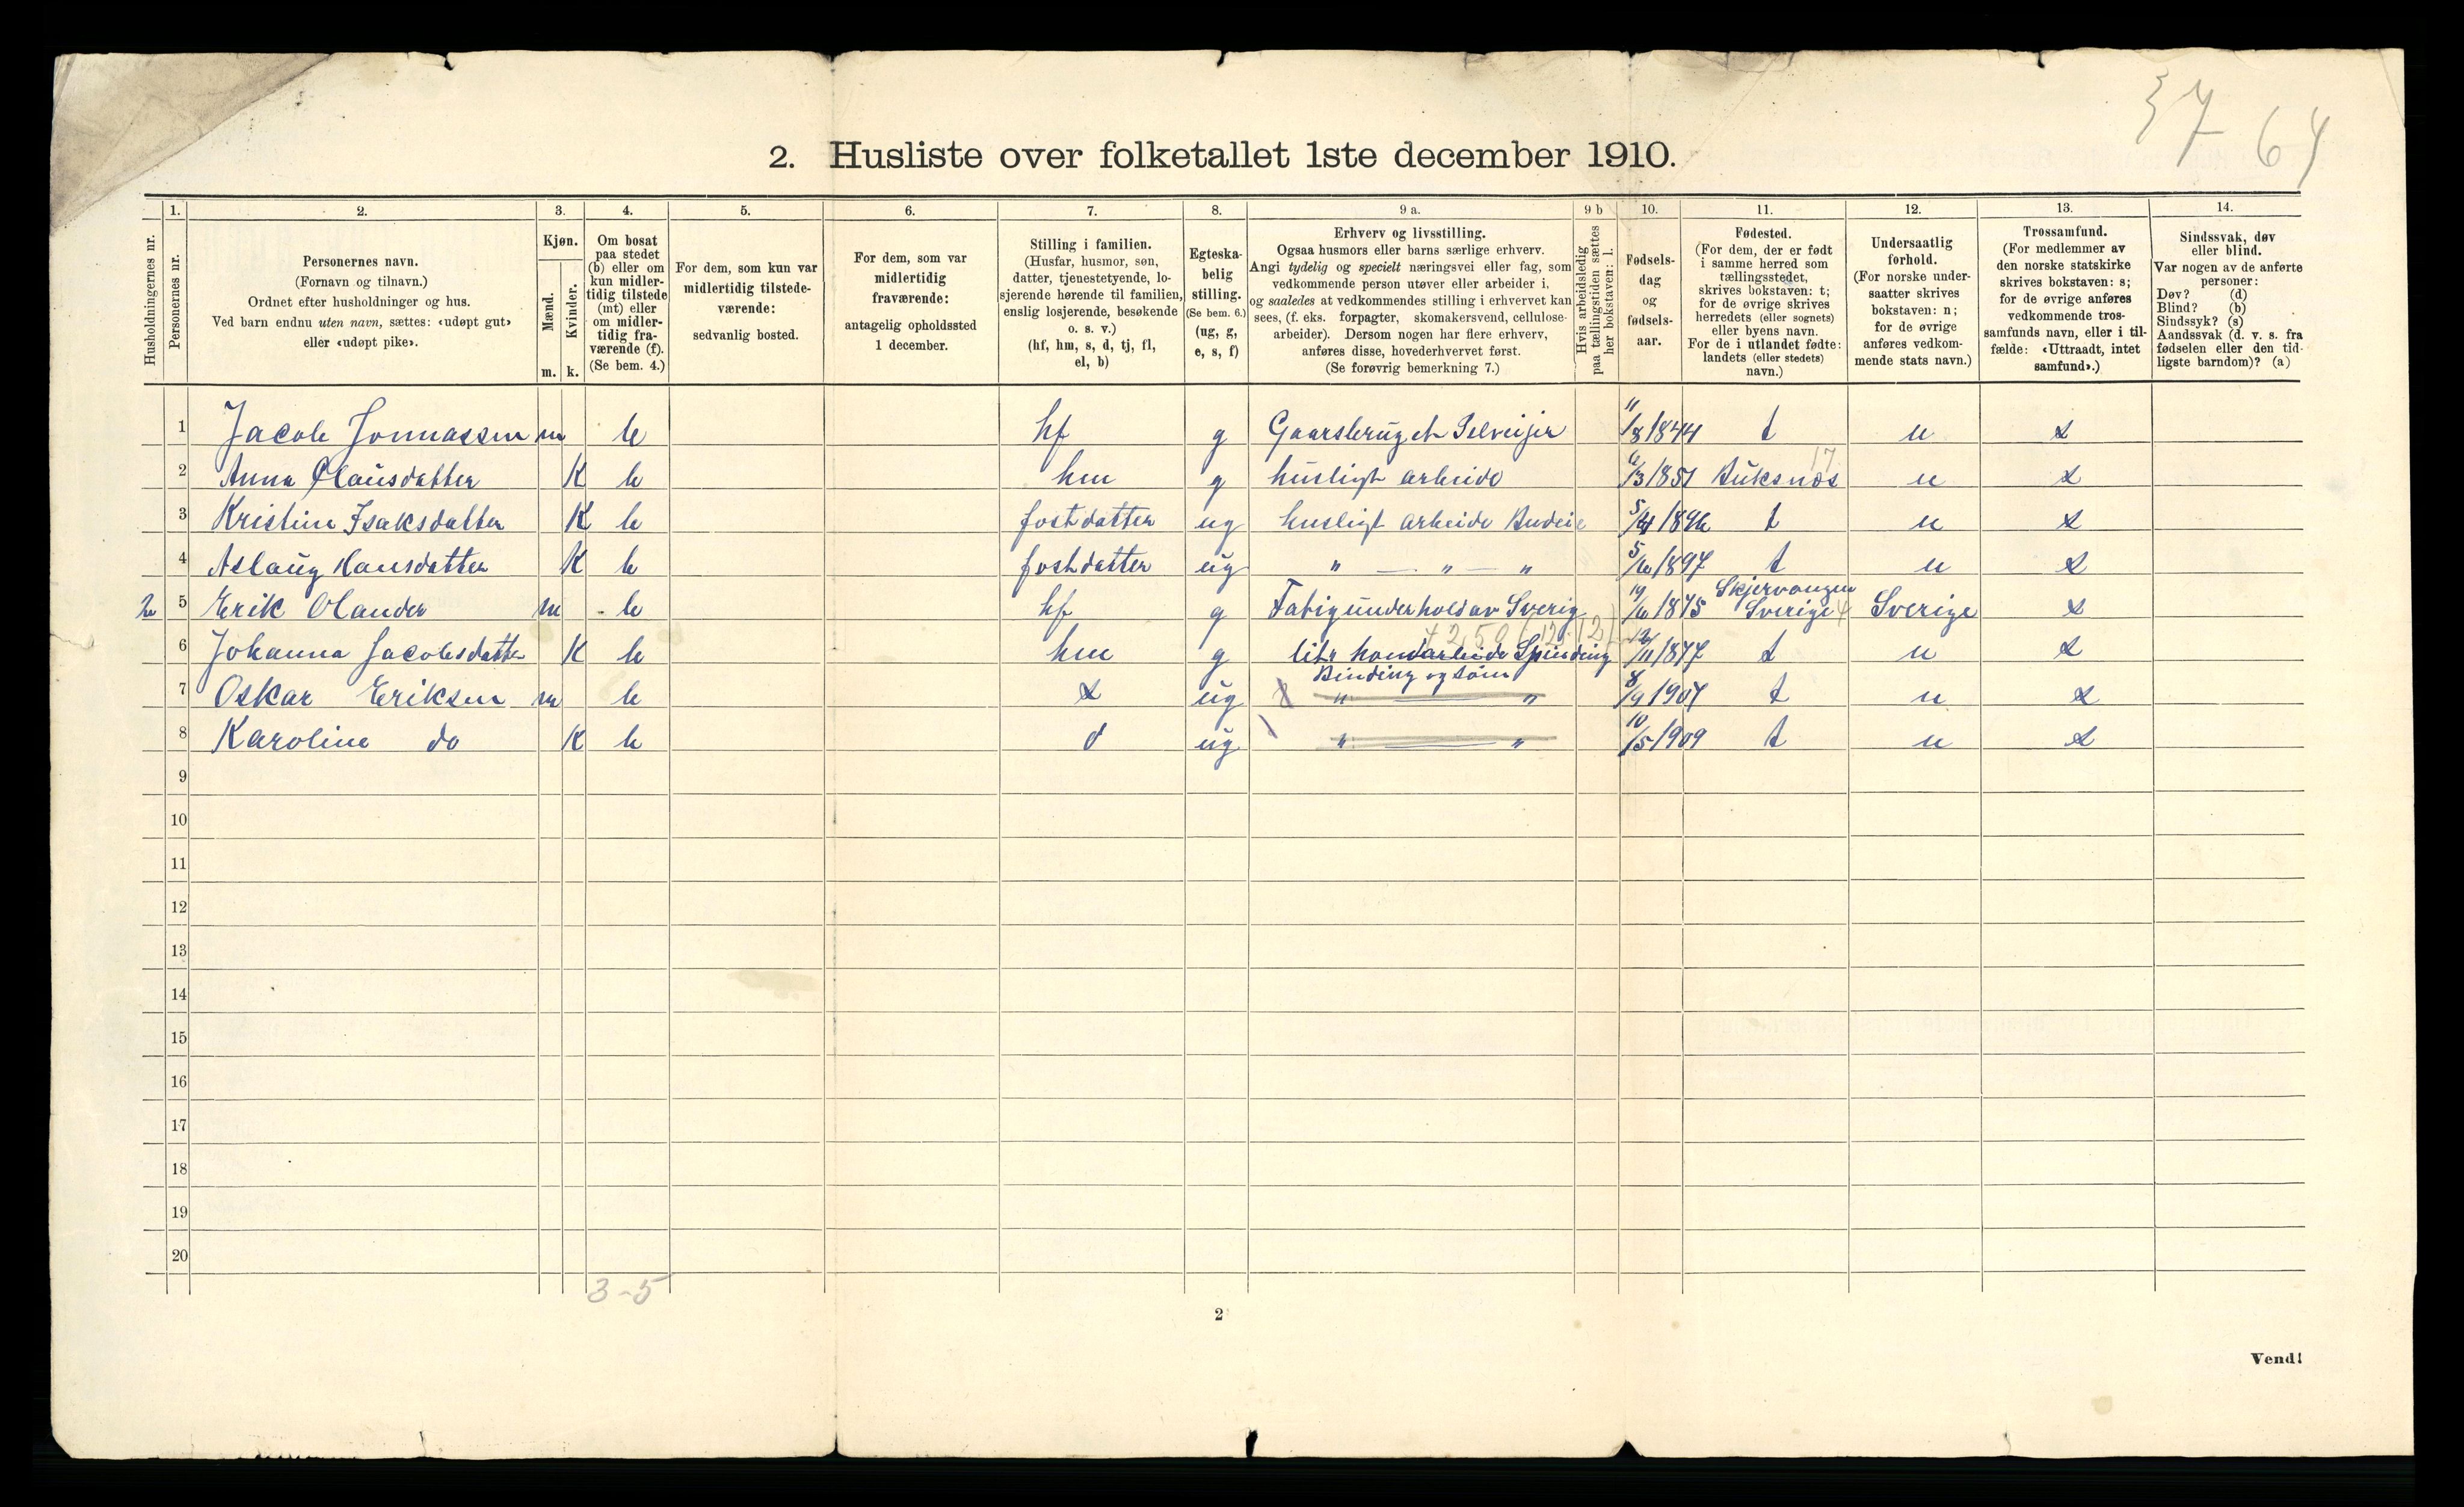 37 64
2. Husliste over folketallet 1ste december 1910.
1. 2. 3. 4. 5. 6. 7. 8. 9 a. 9 b 10. 11. 12. 13. 14.
Husholdningernes nr.
Personernes nr.
Personernes navn.
(Fornavn og tilnavn.)
Ordnet efter husholdninger og hus.
Ved barn endnu uten navn, sættes: «udøpt gut»
eller «udøpt pike».
Kjøn.
Mænd.
Kvinder.
m. k.
Om bosat
paa stedet
(b) eller om
kun midler-
tidig tilstede
(mt) eller
om midler-
tidig fra-
værende (f).
(Se bem. 4.)
For dem, som kun var
midlertidig tilstede-
værende:
sedvanlig bosted.
For dem, som var
midlertidig
fraværende:
antagelig opholdssted
1 december.
Stilling i familien.
(Husfar, husmor, søn,
datter, tjenestetyende, lo-
sjerende hørende til familien,
enslig losjerende, besøkende
o. s. v.)
(hf, hm, s, d, tj, fl,
el, b)
Egteska-
belig
stilling.
(Se bem. 6.)
(ug, g,
e, s, f)
Erhverv og livsstilling.
Ogsaa husmors eller barns særlige erhverv.
Angi tydelig og specielt næringsvei eller fag, som
vedkommende person utøver eller arbeider i,
og saaledes at vedkommendes stilling i erhvervet kan
sees, (f. eks. forpagter, skomakersvend, cellulose-
arbeider). Dersom nogen har flere erhverv,
anføres disse, hovederhvervet først.
(Se forøvrig bemerkning 7.)
Hvis arbeidsledig
paa tællingstiden sættes
her bokstaven: l.
Fødsels-
dag
og
fødsels-
aar.
Fødested.
(For dem, der er født
i samme herred som
tællingsstedet,
skrives bokstaven: t;
for de øvrige skrives
herredets (eller sognets)
eller byens navn.
For de i utlandet fødte:
landets (eller stedets)
navn.)
Undersaatlig
forhold.
(For norske under-
saatter skrives
bokstaven: n;
for de øvrige
anføres vedkom-
mende stats navn.)
Trossamfund.
(For medlemmer av
den norske statskirke
skrives bokstaven: s;
for de øvrige anføres
vedkommende tros-
samfunds navn, eller i til-
fælde: «Uttraadt, intet
samfund».)
Sindssvak, døv
eller blind.
Var nogen av de anførte
personer:
Døv? (d)
Blind? (b)
Sindssyk? (s)
Aandssvak (d. v. s. fra
fødselen eller den tid-
ligste barndom)? (a)
1 Jacob Jonnassen m b hf g Gaarsbrug et Selveijer 11/8 1844 t n s
2 Anna Clausdatter K b hm g husligt arbeide 6/3 1851 Buksnæs 17 n s
3 Kristine Isaksdatter K b fostdatter ug husligt arbeide Budeie t n s
4 Aslaug Hansdatter K b fostdatter ug " — " — " 5/6 1897 t n s
2 5 Erik Olander m b hf g Fatigunderhold av Sverig 19/6 1875 Skjervangen Sverige 4 Sverige s
6 Johanna Jacobsdatter K b hm g litt haandarbeide Spinding Binding og søm 12/11 1877 t n s
7 Oskar Eriksen m b s ug " — " 8/9 1907 t n s
8 Karoline do K b d ug " — " 10/5 1909 t n s
9
10
11
12
13
14
15
16
17
18
19
20
3-5
2
Vend!